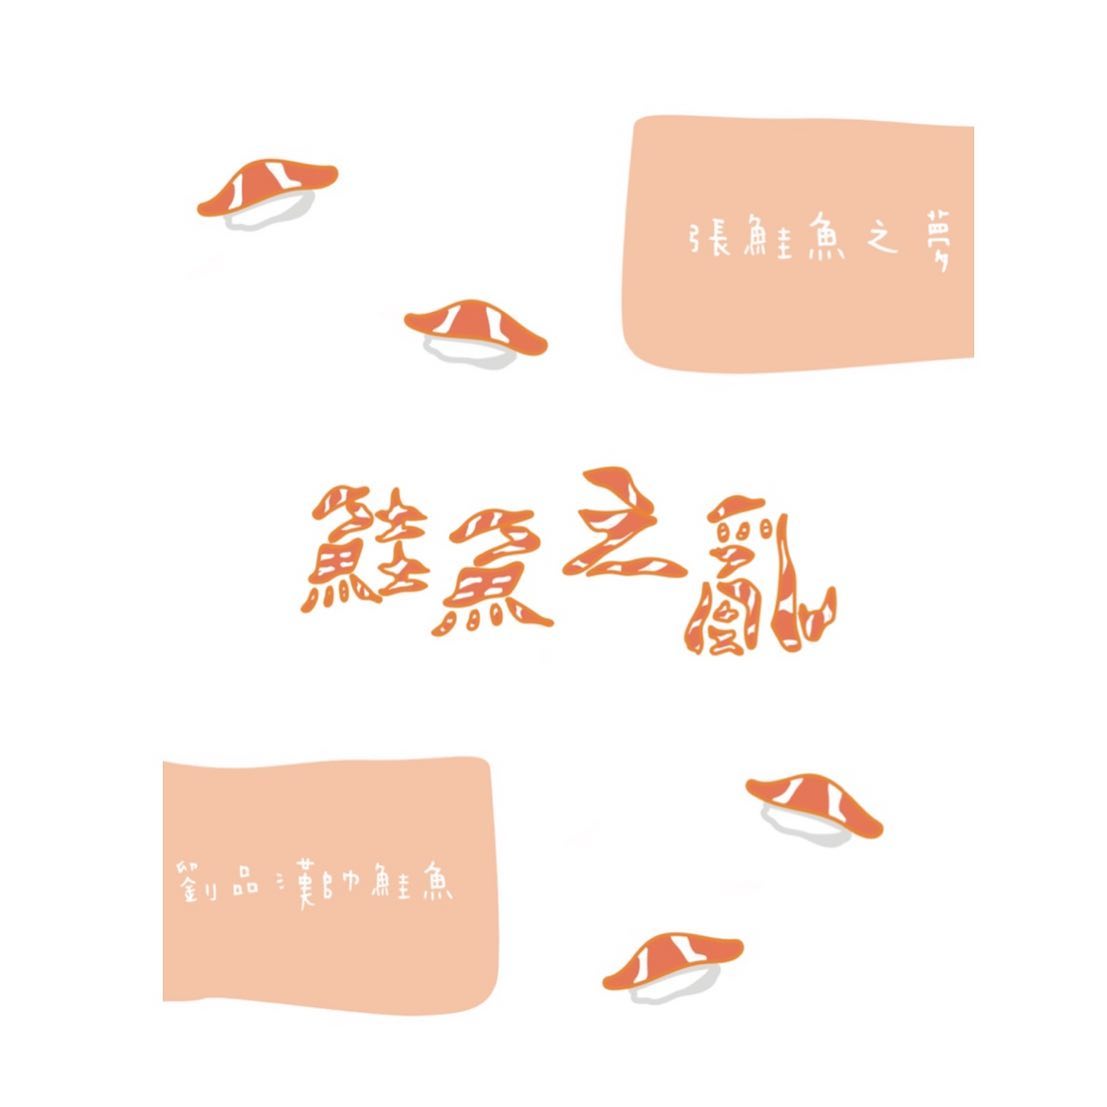 張鮭魚之夢
鮭魚之亂
劉品漢帥鮭魚